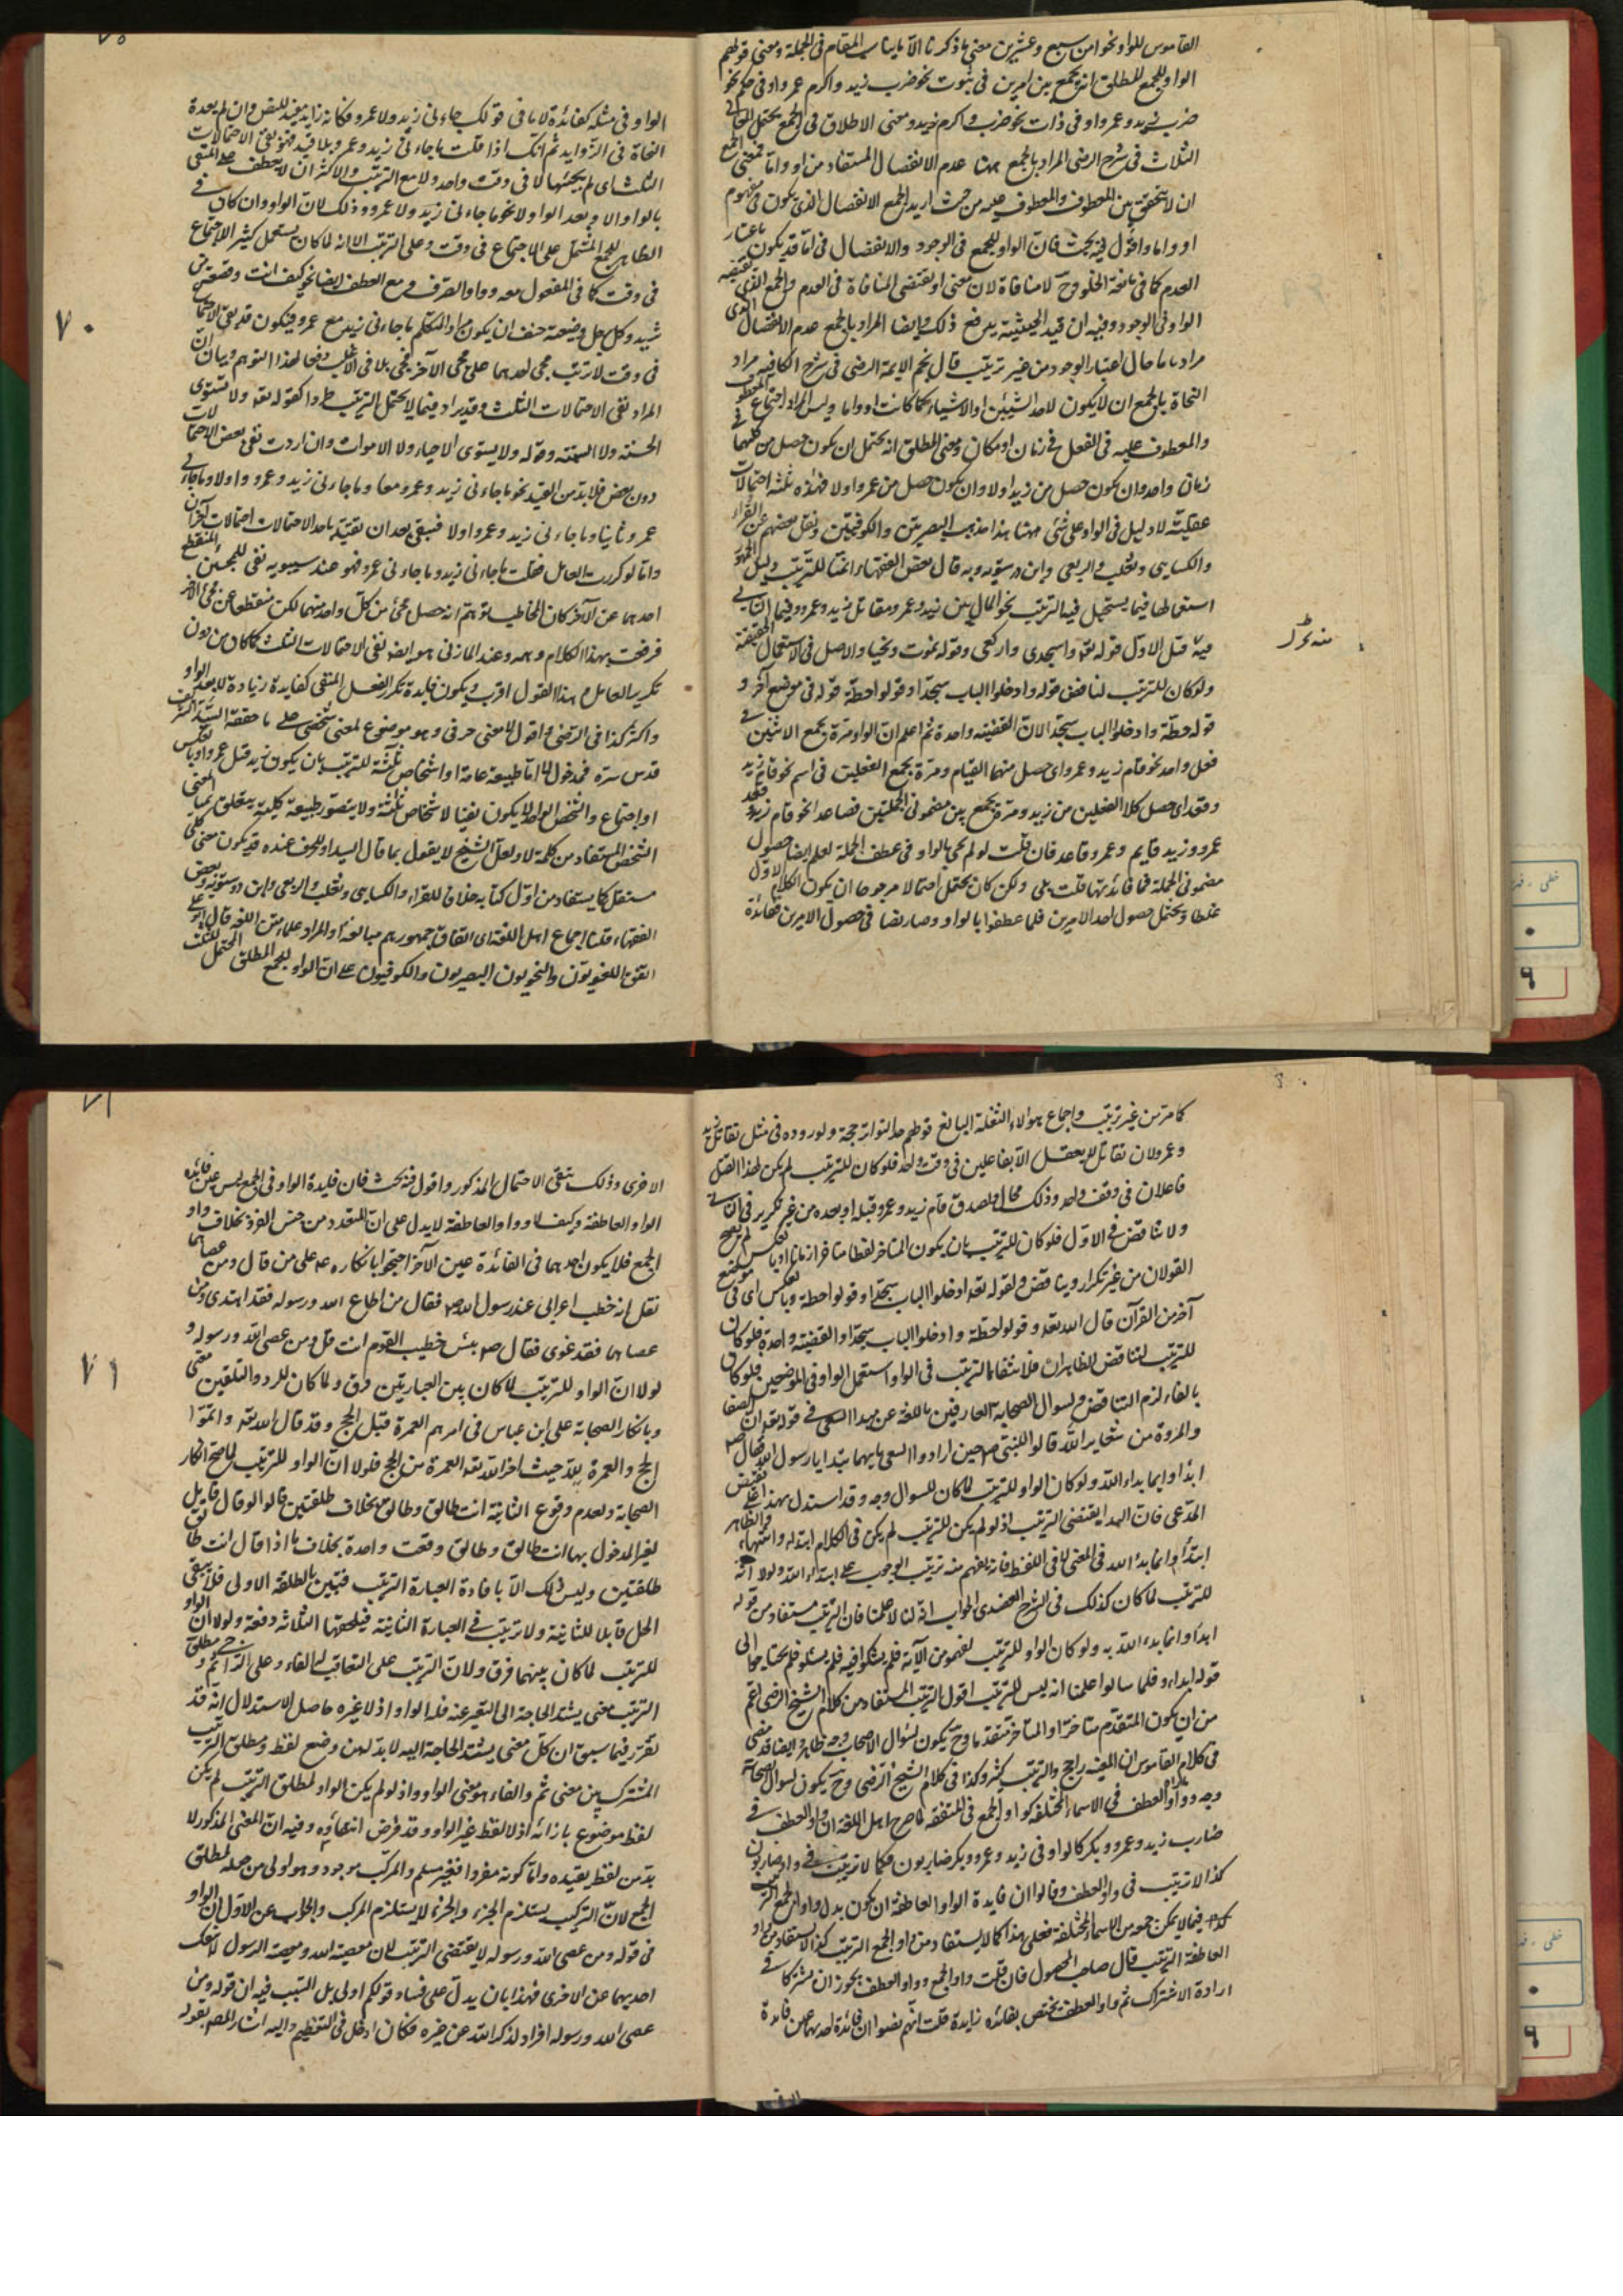 القاموس للواو نحوا من سبع وعشرين معنى ما ذكرنا الا ما يناسب المقام فى الجملة ومعنى قولهم
الواو للجمع المطلق انه يجمع بين امرين فى ثبوت نحو ضرب زيد واكرم عمرو او فى حكم نحو
ضرب زيد وعمرو او فى ذات نحو ضرب واكرم زيد ومعنى الاطلاق فى الجمع يحتمل المعانى
الثلاث فى شرح الرضى المراد بالجمع ههنا عدم الانفصال المستفاد من او واما فمعنى الجمع
ان لا يتحقق بين المعطوف والمعطوف عليه من حيث اريد الجمع الانفصال الذى يكون فى مفهوم
او واما واقول فيه بحث فان الواو للجمع فى الوجود والانفصال فى اما قد يكون باعتبار
العدم كما فى مانعة الخلو وح لا منافاة لان معنى او يقتضى المنافاة فى العدم والجمع الذى يقتضيه
الواو فى الوجود وفيه ان قيد الحيثية يدفع ذلك وايضا المراد بالجمع عدم الانفصال الذى
مراد باما حال اعتبار الوجود من غير ترتيب قال نجم الايمة الرضى فى شرح الكافيه مراد
النحاة بالجمع ان لا يكون لاحد الشيئين او الاشياء كما كانت او واما وليس المراد اجتماع المعطوف
والمعطوف عليه فى الفعل فى زمان او مكان ومعنى المطلق انه يحتمل ان يكون حصل من كليهما فى
زمان واحد وان يكون حصل من زيد اولا وان يكون حصل من عمرو اولا فهذه ثلثه احتمالات
عقلية لا دليل فى الواو على شئ منها هذا مذهب البصريين والكوفيين ونقل بعضهم عن الفراء
والكسايى وثعلب والربعى وابن درستويه وبه قال بعض الفقهاء انها للترتيب دليل الجمهور
استعمالها فيما يستحيل فيه الترتيب نحو المال بين زيد وعمرو وتقاتل زيد وعمرو وفيما الثانى
فيه قبل الاول كقوله تع واسجدى واركعى وقوله نموت ونحيا والاصل فى الاستعمال الحقيقة
ولو كان للترتيب لناقض قوله وادخلوا الباب سجدا وقولوا حطة قوله فى موضع آخر و
قولوا حطة وادخلوا الباب سجدا لان القضية واحدة ثم اعلم ان الواو مرة يجمع الاثنين فى
فعل واحد نحو قام زيد وعمرو اى حصل منهما القيام ومرة يجمع الفعلين فى اسم نحو قام زيد
وقعد اى حصل كلا الفعلين من زيد ومرة يجمع بين مضمونى الجملتين فصاعدا نحو قام زيد وقعد
عمرو وزيد قايم وعمرو قاعد فان قلت لو لم يجئ بالواو فى عطف الجملة لعلم ايضا حصول
مضمونى الجملة فما فائدتها قلت بلى ولكن كان يحتمل احتمالا مرجوحا ان يكون الكلام الاول
غلطا ويحتمل حصول احد الامرين فلما عطف بالواو وصار نصا فى حصول الامرين ففائدة
الواو فى مثله كفائدة لا ما فى قولك جاءنى زيد ولا عمرو فكانه زايد مفيد للنص وان لم يعده
النحاة فى الزوايد ثم انك اذا قلت ما جاءنى زيد وعمرو بلا قيد فهو نفى الاحتمالات
الثلث اى لم يجيئا لا فى وقت واحد ولا مع الترتيب والاكثر ان لا يعطف على المنفى
بالواو الا وبعد الواو لا نحو ما جاءنى زيد ولا عمرو وذلك لان الواو وان كان فى
الظاهر للجمع المشتمل على الاجتماع فى وقت وعلى الترتيب الا انه لما كان يستعمل كثيرا للاجتماع
فى وقت كما فى المفعول معه وواو الصرف ومع العطف ايضا نحو كيف انت وقصعة من
ثريد وكل رجل وضيعته خيف ان يكون مراد المتكلم ما جاءنى زيد مع عمرو فيكون قد بقى الاحتمالات
فى وقت لا ترتب مجئ احدهما على مجئ الآخر فجئ بلا فى الاغلب دفعا لهذا التوهم وبيان ان
المراد نفى الاحتمالات الثلث وقد يراد فيما لا يحتمل الترتيب طردا كقوله تع ولا تستوى
الحسنة ولا السيئة وقوله ولا يستوى الاحياء ولا الاموات وان اردت نفى بعض الاحتمالات
دون بعض فلا بد من القيد نحو ما جاءنى زيد وعمرو معا وما جاءنى زيد وعمرو اولا وما جاءنى
عمرو ثانيا وما جاءنى زيد وعمرو اولا فيبقى بعد ان تقيده باحد الاحتمالات احتمالات آخران
واما لو كررت العامل فقلت ما جاءنى زيد وما جاءنى عمرو فهو عند سيبويه نفى للمجيئين المنقطع
احدهما عن الآخر كان المخاطب توهم انه حصل مجئ من كل واحد منهما لكن منقطعا عن مجئ الآخر
فرفعت بهذا الكلام وهمه وعند المازنى هو ايضا نفى الاحتمالات الثلث كما كان من دون
تكرير العامل وهذا القول اقرب ويكون فايدة تكرر الفعل المنفى كفايدة زيادة لا بعد الواو
واكثر كذا فى الرضى واقول لما معنى حرفى وهو موضوع لمعنى شخصى على ما حققه السيد الشريف
قدس سره فمدخولها اما طبيعة عامة او اشخاص ثلثة للترتيب بان يكون زيد قبل عمرو او بالعكس
او اجتماع والشخص الواحد لا يكون نفيا لاشخاص ثلثة ولا يتصور طبيعة كلية يتعلق بها المعنى
الشخص المستفاد من كلمة لا ولعل الشيخ لا يقول بما قال السيد او للحرف عنده قد يكون معنى كلى
مستقل كما يستفاد من اول كتابه خلافا للفراء والكسايى وثعلب والربعى وابن درستويه وبعض
الفقهاء قلنا اجماع اهل اللغة اى اتفاق جمهورهم مبالغة او المراد علماء متن اللغة قال ابو على
اتفق اللغويون والنحويون البصريون والكوفيون على ان الواو للجمع المطلق المحتمل للثلث
٧٠
كما مر من غير ترتيب واجماع هولاء النقلة البالغ قولهم حد التواتر حجة ولوروده فى مثل تقاتل زيد
وعمرو لان تقاتل لا يعقل الا بفاعلين فى وقت واحد فلو كان للترتيب لم يكن لهذا الفعل
فاعلان فى وقت واحد وذلك محال ولصدق قام زيد وعمرو قبله او بعده من غير تكرير فى الثانى
ولا تناقض فى الاول فلو كان للترتيب بان يكون المتاخر لفظا متاخر ازمانا او بالعكس لم يصح
القولان من غير تكرار وتناقض ولقوله تع ادخلوا الباب سجدا وقولوا حطة وبالعكس اى فى موضع
آخر من القرآن قال الله تع وقولوا حطة وادخلوا الباب سجدا والقضية واحدة فلو كان
للترتيب لتناقض الظاهران فلا انتفاء الترتيب فى الواو استعمل الواو فى الموضعين فلو كان
بالفاء لزم التناقض ولسوال الصحابة العارفين باللغة عن مبدا السعى فى قوله تع ان الصفا
والمروة من شعاير الله قالوا للنبى ص حين ارادوا السعى بايهما نبتدا يا رسول الله فقال ص
ابدأوا بما بداء الله ولو كان الواو للترتيب لما كان للسوال وجه وقد استدل بهذا على نقيض
المدعى فان البدا يقتضى الترتيب اذ لو لم يكن للترتيب لم يكن فى الكلام ابتداء وانتهاء والظاهر
ابتدأوا بما بدأ الله فى المعنى لا فى اللفظ فانه يفهم منه ترتيب الوجوب على ابتداء الله ولولا انه
للترتيب لما كان كذلك فى الشرح العضدى الجواب انه لنا لا علينا فان الترتيب مستفاد من قوله
ابدأوا بما بدء الله به ولو كان الواو للترتيب لفهموه من الآية فلم يشكوا فيه فلم يسئلوه فلم يحتاجوا الى
قوله ابداوا فلما سالوا علمنا انه ليس للترتيب اقول الترتيب المستفاد من كلام الشيخ الرضى اعم
من ان يكون المتقدم متاخرا او المتاخر متقدما وح يكون لسوال الاصحاب وجه ظاهر وايضا قد مضى
فى كلام القاموس ان المعية راجح والترتيب كثير وكذا فى كلام الشيخ الرضى وح يكون لسوال الصحابة
وجه وواو العطف فى الاسماء المختلفة كواو الجمع فى المتفقه لما صرح اهل اللغة ان واو العطف فى
ضارب زيد وعمرو وبكر كالواو فى زيد وعمرو وبكر ضاربون فكما لا ترتيب فى واو ضاربون
كذا لا ترتيب فى واو العطف وقالوا ان فايدة الواو العاطفة ان يكون بدل واو الجمع
فيما لا يمكن جمعه من الاسماء المختلفة فعلى هذا كما لا يستفاد من واو الجمع الترتيب كذا لا يستفاد من واو
العاطفة الترتيب قال صاحب المحصول فان قلت واو الجمع وواو العطف يجوز ان يشتركا فى
ارادة الاشتراك ثم واو العطف يختص بفائدة زايدة قلت انهم نصوا ان فائدة احديهما عين فايدة
الاخرى وذلك ينفى الاحتمال المذكور واقول فيه بحث فان فايدة الواو فى الجمع ليس عين فائدة
الواو العاطفة وكيف لا وواو العاطفة لا يدل على ان المتعدد من جنس الفرد بخلاف واو
الجمع فلا يكون احدهما فى الفائدة عين الآخر احتجوا بانكاره ع على من قال ومن عصاهما
نقل انه خطب اعرابى عند رسول الله ص فقال من اطاع الله ورسوله فقد اهتدى ومن
عصاهما فقد غوى فقال ص بئس خطيب القوم انت قل ومن عصى الله ورسوله و
لولا ان الواو للترتيب لما كان بين العبارتين فرق ولما كان للرد والتلقين معنى
وبانكار الصحابة على ابن عباس فى امرهم العمرة قبل الحج وقد قال الله تع واتموا
الحج والعمرة لله حيث اخر الله تع العمرة من الحج فلولا ان الواو للترتيب لما صح انكار
الصحابة ولعدم وقوع الثانية انت طالق وطالق بخلاف طلقتين قالوا لو قال قايل
لغير المدخول بها انت طالق وطالق وقعت واحدة بخلاف ما اذا قال انت طالق
طلقتين وليس ذلك الا بافادة العبارة الترتيب فتبين بالطلقة الاولى فلا يبقى
المحل قابلا للثانية ولا ترتيب فى العبارة الثانية فيلحقها الثلاثه دفعة ولولا ان الواو
للترتيب لما كان بينهما فرق ولان الترتيب على التعاقب له الفاء وعلى التراخى ثم ومطلق
الترتيب معنى يشتد الحاجة الى التعبير عنه فله الواو اذ لا غيره حاصل الاستدلال انه قد
تقرر فيما سبق ان كل معنى يشتد الحاجة اليه لا بد له من وضع لفظ ومطلق الترتيب
المشترك بين معنى ثم والفاء هو معنى الواو واذ لو لم يكن الواو لمطلق الترتيب لم يكن
لفظ موضوع بازائه اذ لا لفظ غير الواو وقد فرض انتفاؤه وفيه ان المعنى المذكور لا
بد من لفظ يفيده واما كونه مفردا فغير مسلم والمركب موجود وهو اولى من جعله لمطلق
الجمع لان التركيب يستلزم الجزء والجزء لا يستلزم المركب والجواب عن الاول ان الواو
فى قوله ومن عصى الله ورسوله لا يقتضى الترتيب لان معصية الله ومعصية الرسول لا تنفك
احديهما عن الاخرى فهذا بان يدل على فساد قولكم اولى بل السبب فيه ان قوله ومن
عصى الله ورسوله افراد لذكر الله عن غيره فكان ادخل فى التعظيم واليه اشار المص بقوله
٧١